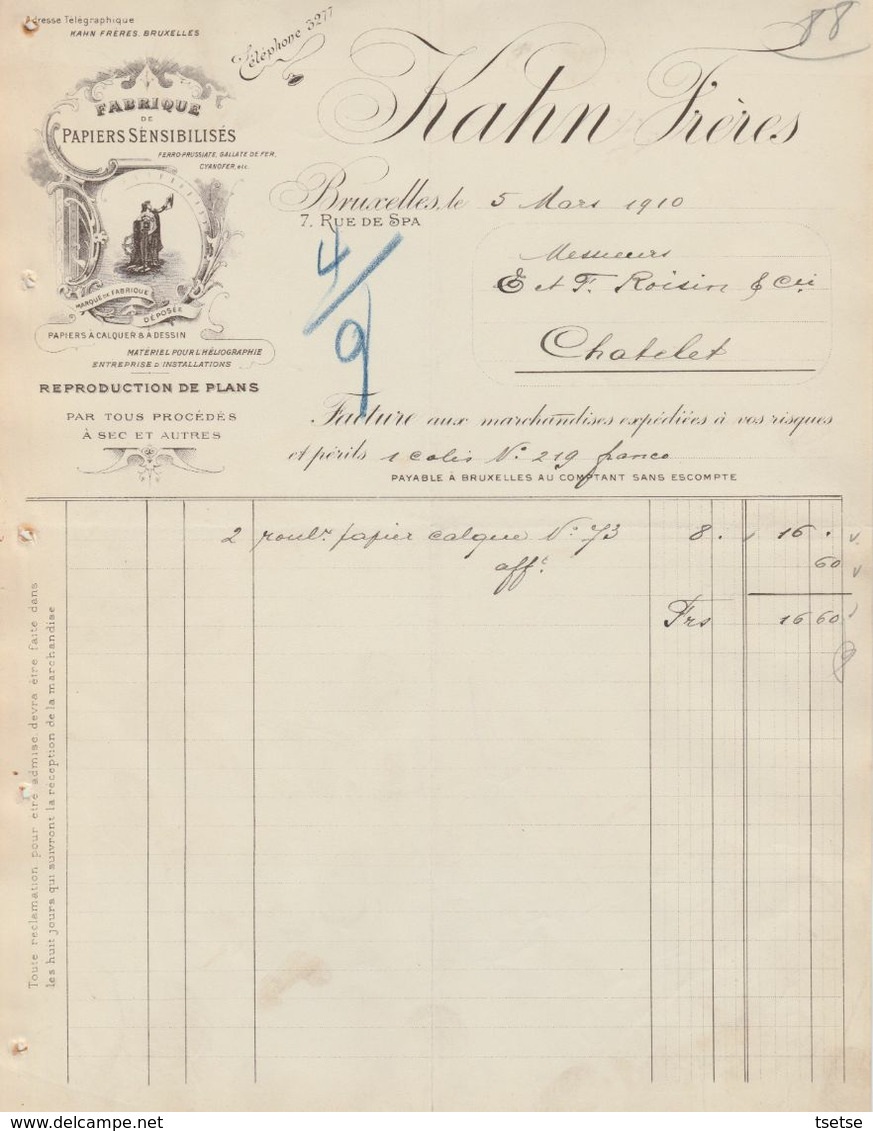 Adresse Télégraphique
KAHN FRÈRES. BRUXELLES
Téléphone 3277
88
Kahn Frères
FABRIQUE
DE
PAPIERS SENSIBILISÉS
FERRO-PRUSSIATE, GALLATE DE FER,
CYANOFER, etc.
MARQUE DE FABRIQUE
DÉPOSÉE
PAPIERS À CALQUER & À DESSIN
MATÉRIEL POUR L'HÉLIOGRAPHIE
ENTREPRISE D'INSTALLATIONS
REPRODUCTION DE PLANS
PAR TOUS PROCÉDÉS
À SEC ET AUTRES
Bruxelles, le 5 Mars 1910
7. RUE DE SPA
4/9
Messieurs
E et F. Roisin & Cie
Chatelet
Facture aux marchandises expédiées à vos risques
et périls 1 colis N° 219 franco
PAYABLE À BRUXELLES AU COMPTANT SANS ESCOMPTE
2 roulx papier calque N° 73 8. 16.
afft 60
Frs 16 60
Toute réclamation pour être admise devra être faite dans
les huit jours qui suivront la réception de la marchandise
tsetse